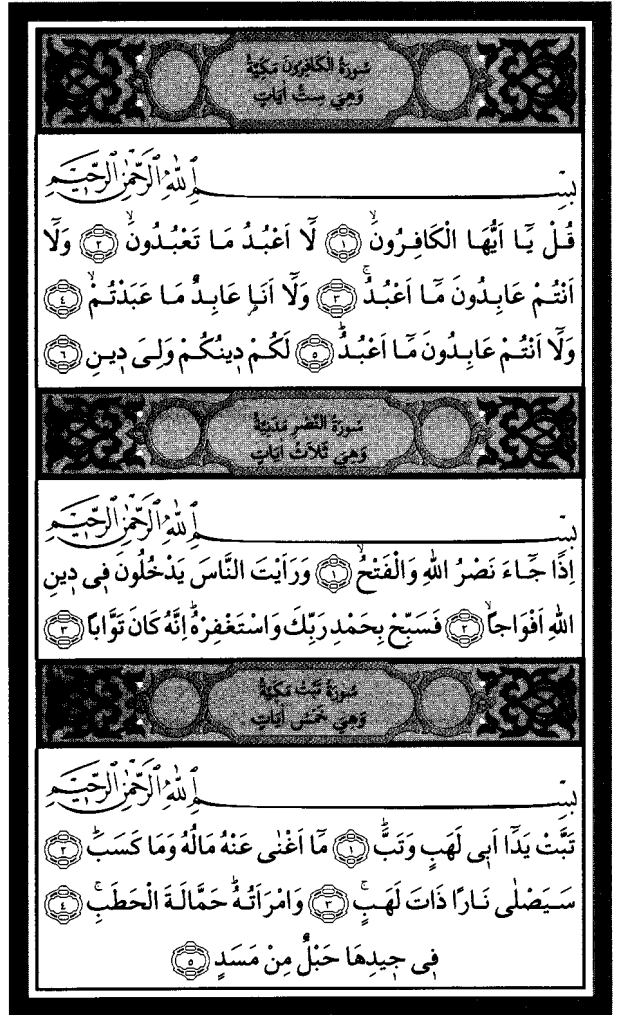 سُورَةُ الْكَافِرُونَ مَكِّيَّةٌ
وَهِيَ سِتُّ اٰيَاتٍ
بِسْمِ اللّٰهِ الرَّحْمٰنِ الرَّحٖيمِ
قُلْ يَٓا اَيُّهَا الْكَافِرُونَۙ ﴿١﴾ لَٓا اَعْبُدُ مَا تَعْبُدُونَۙ ﴿٢﴾ وَلَٓا
اَنْتُمْ عَابِدُونَ مَٓا اَعْبُدُۚ ﴿٣﴾ وَلَٓا اَنَا۬ عَابِدٌ مَا عَبَدْتُمْۙ ﴿٤﴾
وَلَٓا اَنْتُمْ عَابِدُونَ مَٓا اَعْبُدُۜ ﴿٥﴾ لَكُمْ دٖينُكُمْ وَلِيَ دٖينِ ﴿٦﴾
سُورَةُ النَّصْرِ مَدَنِيَّةٌ
وَهِيَ ثَلَاثُ اٰيَاتٍ
بِسْمِ اللّٰهِ الرَّحْمٰنِ الرَّحٖيمِ
اِذَا جَٓاءَ نَصْرُ اللّٰهِ وَالْفَتْحُۙ ﴿١﴾ وَرَاَيْتَ النَّاسَ يَدْخُلُونَ فٖي دٖينِ
اللّٰهِ اَفْوَاجاًۙ ﴿٢﴾ فَسَبِّحْ بِحَمْدِ رَبِّكَ وَاسْتَغْفِرْهُۜ اِنَّهُ كَانَ تَوَّاباً ﴿٣﴾
سُورَةُ تَبَّتْ مَكِّيَّةٌ
وَهِيَ خَمْسُ اٰيَاتٍ
بِسْمِ اللّٰهِ الرَّحْمٰنِ الرَّحٖيمِ
تَبَّتْ يَدَٓا اَبٖي لَهَبٍ وَتَبَّۜ ﴿١﴾ مَٓا اَغْنٰى عَنْهُ مَالُهُ وَمَا كَسَبَۜ ﴿٢﴾
سَيَصْلٰى نَارًا ذَاتَ لَهَبٍۚ ﴿٣﴾ وَامْرَاَتُهُۜ حَمَّالَةَ الْحَطَبِۚ ﴿٤﴾
فٖي جٖيدِهَا حَبْلٌ مِنْ مَسَدٍ ﴿٥﴾